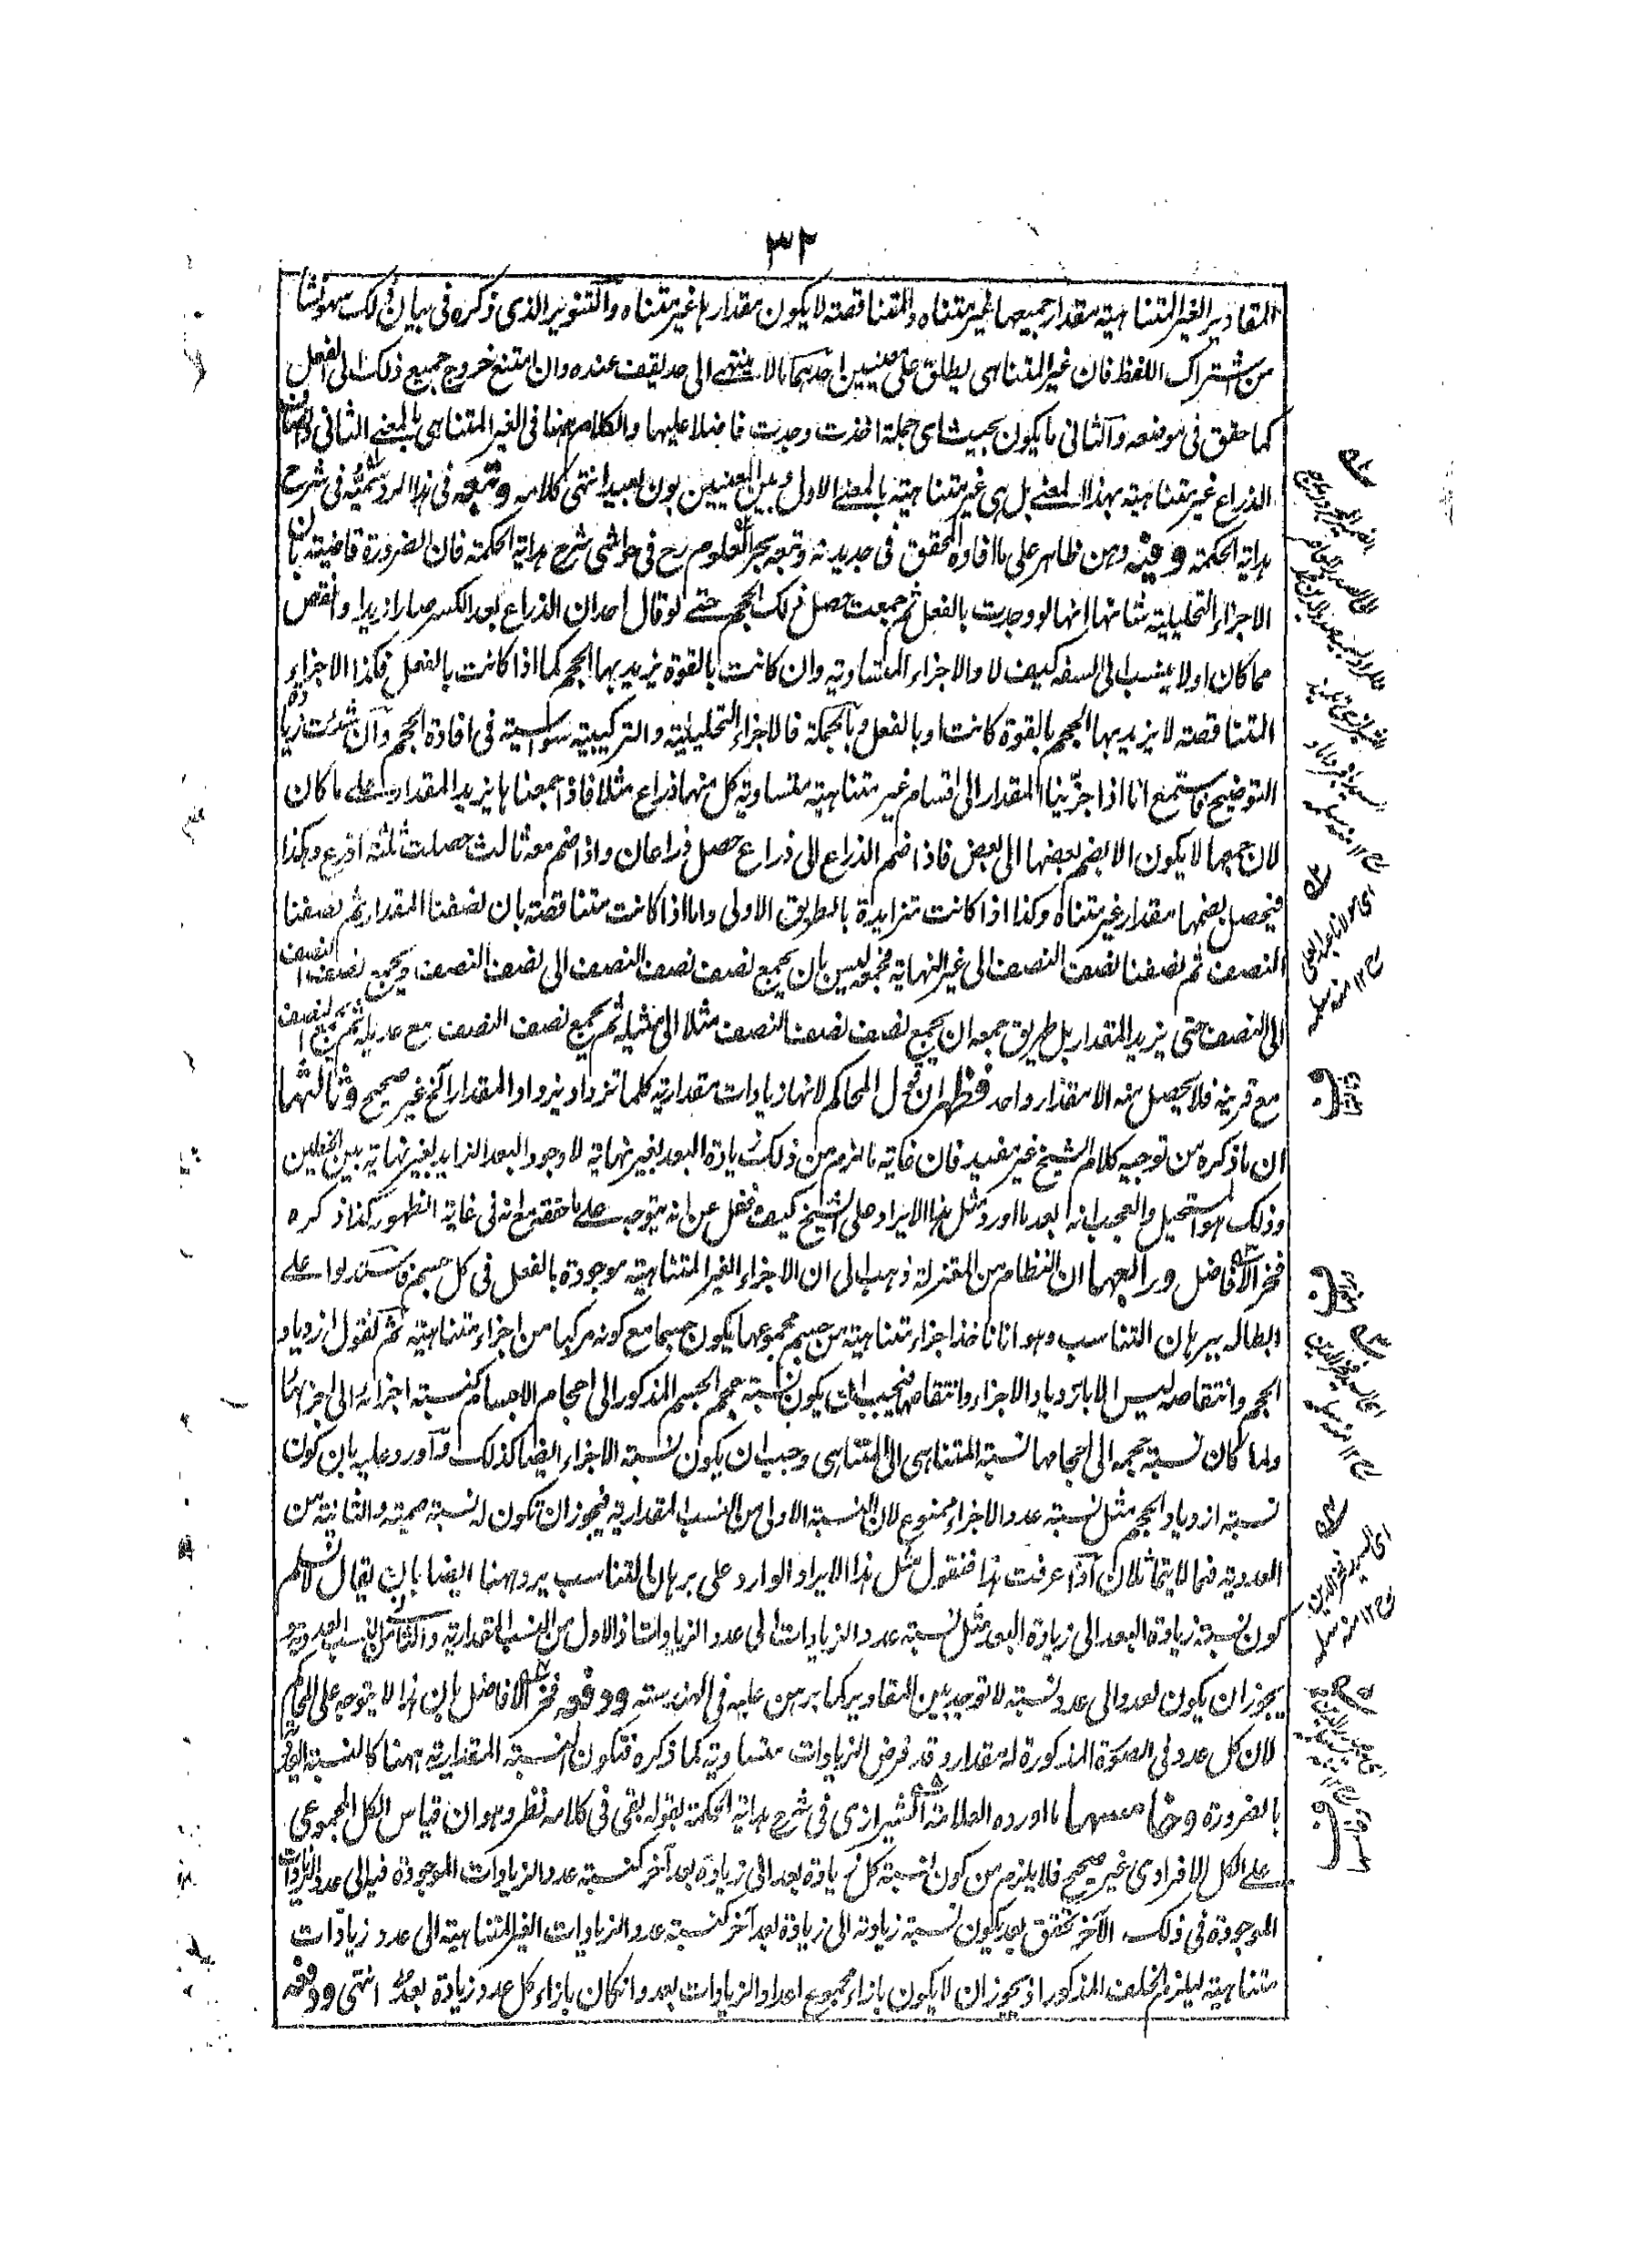 ٣٢
المقادير الغير المتناهية مقدار جميعها غير متناه والمتناقصة لا يكون مقدارها غير متناه والتنوير الذى ذكره فى بيان ذلك سهو نشأ
من اشتراك اللفظ فان غير المتناهى يطلق على معنيين احدهما ما لا ينتهى الى حد يقف عنده وان امتنع خروج جميع ذلك الى الفعل
كما حقق فى موضعه والثانى ما يكون بحيث اى جملة اخذت وجدت فاضلا عليها والكلام ههنا فى الغير المتناهى بالمعنى الثانى
الذراع غير متناهية بهذا المعنى بل هى غير متناهية بالمعنى الاول وبين المعنيين بون بعيد انتهى كلامه وتبعه فى هذا الرد سميه فى شرح
هداية الحكمة وفيه وهن ظاهر على ما افاده المحقق فى جديدته وتبعه بحر العلوم رح فى حواشى شرح هداية الحكمة فان الضرورة قاضية بان
الاجزاء التحليلية شانها انها لو وجدت بالفعل ثم جمعت حصل ذلك الحجم حتى لو قال احد ان الذراع بعد الكسر صار ازيد او انقص
مما كان اولا ينسب الى السفه كيف لا والاجزاء المتساوية وان كانت بالقوة يزيد بها الحجم كما اذا كانت بالفعل فكذا الاجزاء
المتناقصة لا يزيد بها الحجم بالقوة كانت او بالفعل وبالجملة فالاجزاء التحليلية والتركيبية سواسية فى افادة الحجم وان شئت زيادة
التوضيح فاستمع انا اذا جزّينا المقدار الى اقسام غير متناهية متساوية كل منها ذراع مثلا فاذا جمعناها يزيد المقدار على ما كان
لان جمعها لا يكون الا بضم بعضها الى بعض فاذا ضم الذراع الى ذراع حصل ذراعان واذا ضم معه ثالث حصلت ثلثة اذرع وهكذا
فيحصل بضمها مقدار غير متناه وكذا اذا كانت متزايدة بالطريق الاولى واما اذا كانت متناقصة بان نصفنا المقدار ثم نصفنا
النصف ثم نصفنا نصف النصف الى غير النهاية فجمعه ليس بان يجمع نصف نصف النصف الى نصف النصف ويجمع نصف النصف
الى النصف حتى يزيد المقدار بل طريق جمعه ان يجمع نصف نصف النصف مثلا الى مثيله ثم يجمع نصف النصف مع عديله ثم يجمع النصف
مع قرينه فلا يحصل منه الا مقدار واحد فظهر ان قول المحاكم لانها زيادات مقدارية كلما تزداد يزداد المقدار الخ غير صحيح وثالثها
ان ما ذكره من توجيه كلام الشيخ غير مفيد فان غاية ما لزم من ذلك زيادة البعد بغير نهاية لا وجود البعد الزايد بغير نهاية بين الخطين
وذلك هو المستحيل والعجب انه بعد ما اورد مثل هذا الايراد على الشيخ كيف غفل عن انه يتوجه على ما حققه مع انه فى غاية الظهور كذا ذكره
فخر الافاضل ورابعها ان النظام من المعتزلة ذهب الى ان الاجزاء الغير المتناهية موجودة بالفعل فى كل جسم فاستدلوا على
ابطاله ببرهان التناسب وهو انا ناخذ اجزاء متناهية من جسم مجموعها يكون جسما مع كونه مركبا من اجزاء متناهية ثم نقول ازدياد
الحجم وانتقاصه ليس الا بازدياد الاجزاء وانتقاصها فيجب ان يكون نسبة حجم الجسم المذكور الى احجام الاجسام كنسبة اجزائه الى اجزائها
ولما كان نسبة حجمه الى احجامها نسبة المتناهى الى المتناهى وجب ان يكون نسبة الاجزاء ايضا كذلك واورد عليه بان كون
نسبة ازدياد الحجم مثل نسبة عدد الاجزاء ممنوع لان النسبة الاولى من النسب المقدارية فيجوز ان تكون له نسبة صمية والثانية من
العددية فهما لا يتماثلان اذا عرفت هذا فنقول مثل هذا الايراد الوارد على برهان التناسب يرد ههنا ايضا بان يقال لا نسلم
كون نسبة زيادة البعد الى زيادة البعد مثل نسبة عدد الزيادات الى عدد الزيادات اذ الاول من النسب المقدارية والثانى من النسب العددية و
يجوز ان يكون لعدد الى عدد نسبة لا توجد بين المقادير كما برهن عليه فى الهندسة ودفعه فخر الافاضل بان هذا لا يتوجه على المحاكم
لان كل عدد فى الصورة المذكورة له مقدار وقد فرض الزيادات متساوية كما ذكره فتكون النسبة المقدارية ههنا كالنسبة العددية
بالضرورة وخامسها ما اورده العلامة الشيرازى فى شرح هداية الحكمة بقوله بقى فى كلامه نظر وهو ان قياس الكل المجموعى
على الكل الافرادى غير صحيح فلا يلزم من كون نسبة كل زيادة بعد الى زيادة بعد آخر كنسبة عدد الزيادات الموجودة فيه الى عدد الزيادات
الموجودة فى ذلك الآخر تحقق بعد يكون نسبة زيادته الى زيادة بعد آخر كنسبة عدد الزيادات الغير المتناهية الى عدد زيادات
متناهية ليلزم الخلف المذكور اذ يجوز ان لا يكون بازاء مجموع اعداد الزيادات بعد وان كان بازاء كل عدد زيادة بعد انتهى ودفعه